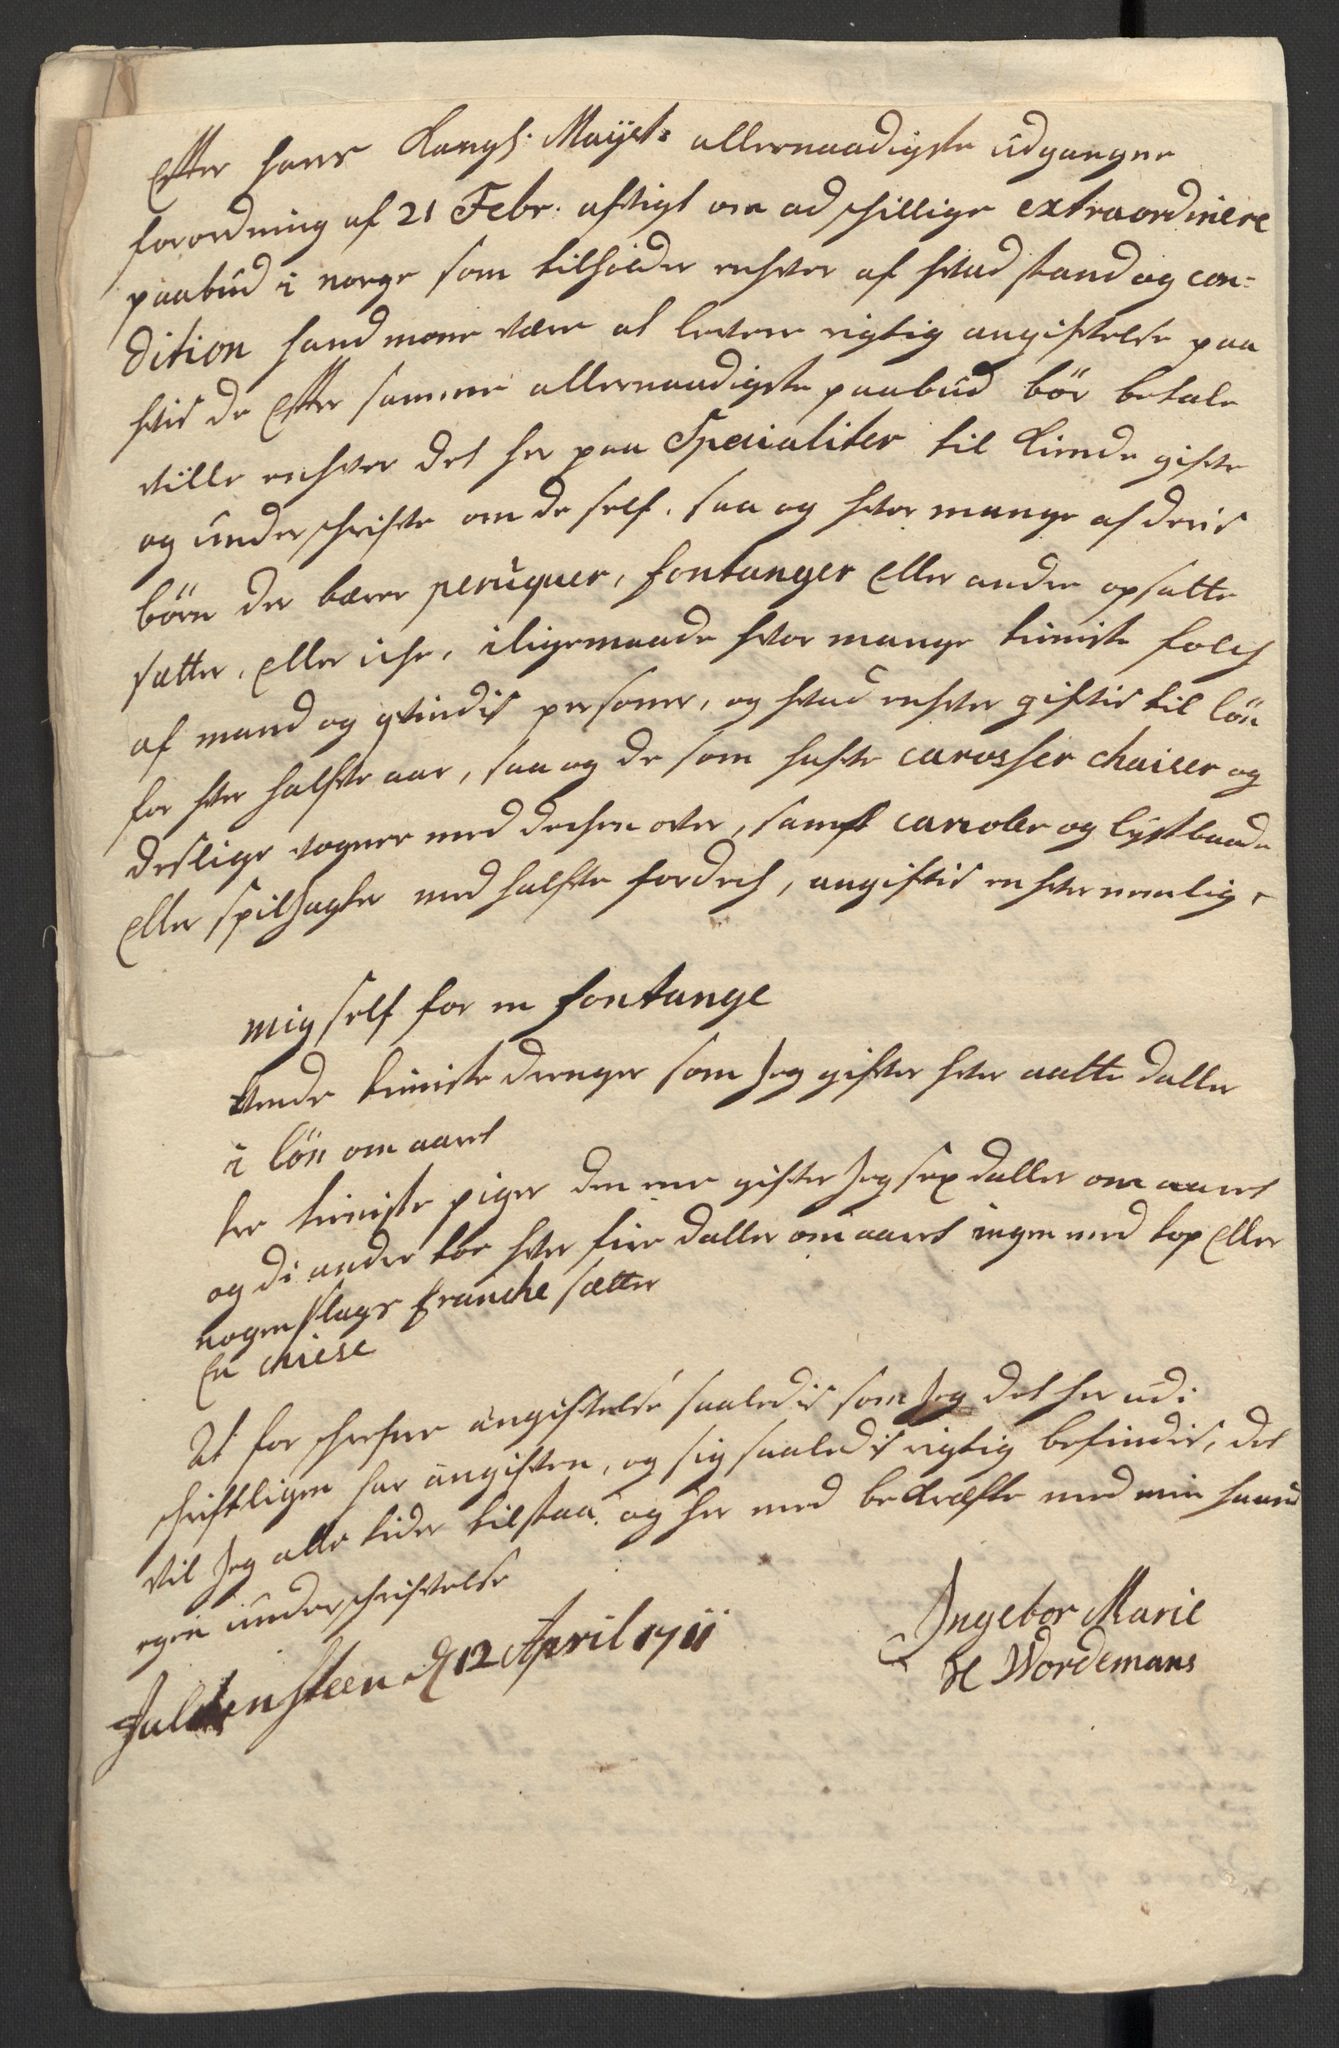 Effter hans Kongl. Mayst: allernaadigste udgangne
forordning af 21 Febr. afvigt om adschillige extraordinere
paabud i norge som tilholder enhver af hvad stand og con-
dition hand mone være at levere rigtig angiftelse paa
hvis de Effter samme allernaadigste paabud bör betale
ville enhver det her paa Specialiter til Kiende gifve
og underschrifve om de self, saa og hvor mange af deris
börn der bærer peruquer, fontanger Eller andre opsatte
sætter, Eller iche, iligemaade hvor mange tieniste folch
af mand og qvindis personer, og hvad enhver gifvis til lön
for hver halfve aar, saa og de som hafve carosser chaiser og
deslige vogner med dechen over, sampt carioler og lystbaade
Eller spiljagter med halfve fordech, angifvis enhver nemlig
mig self for en fontange
tvende tieniste drenger som Jeg gifver hver aatte daller
i lön om aaret
tre tieniste piger den ene gifver Jeg sex daller om aaret
og di andre toe hver fiir daller om aaret ingen med top Eller
nogen slags franche sætter
En chiese
At for schrefne angiftelse saaledis som Jeg det her udi
schriftligen har angifven, og sig saaledis rigtig befindis, det
vil Jeg alle tider tilstaa, og her med bekræfte med min haand
egen underschrifvelse
Jalchensteen d 12 April 1711
Ingebor Marie
Sl Wordemans